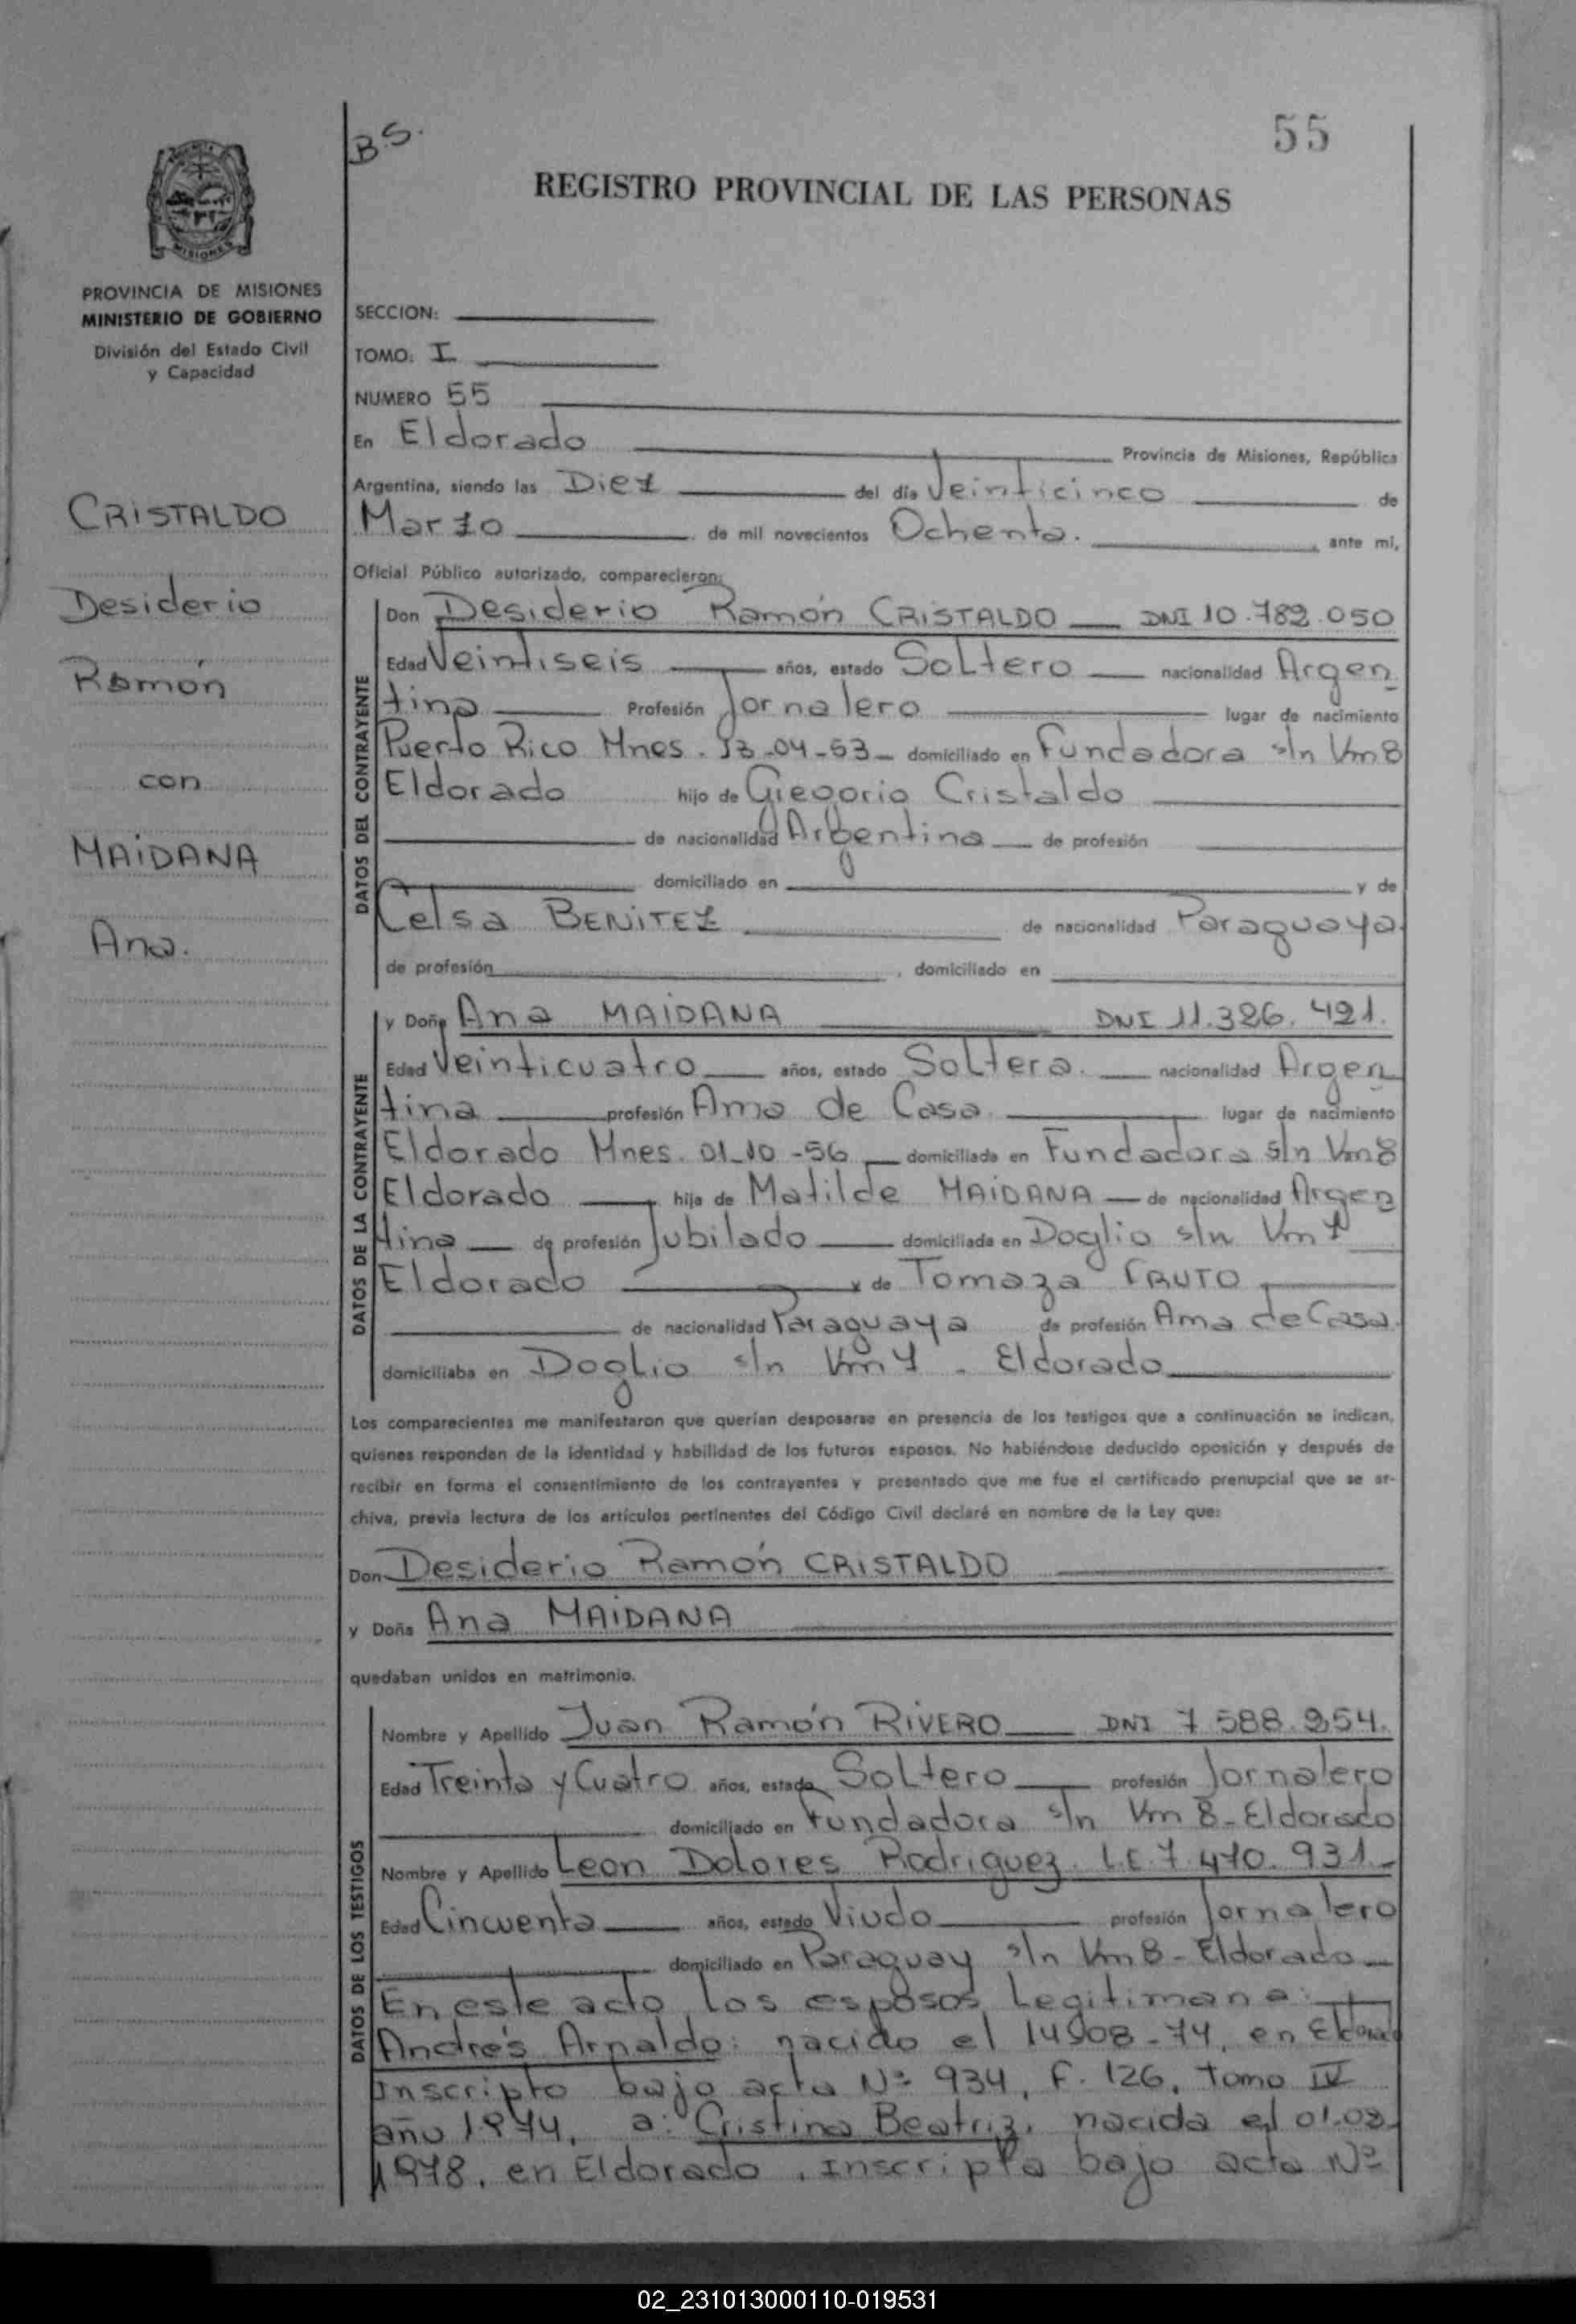 B.S.
55
REGISTRO PROVINCIAL DE LAS PERSONAS
MISIONES
PROVINCIA DE MISIONES
MINISTERIO DE GOBIERNO
División del Estado Civil
y Capacidad
CRISTALDO
Desiderio
Ramón
con
MAIDANA
Ana.
SECCION:
TOMO: I
NUMERO 55
En Eldorado Provincia de Misiones, República
Argentina, siendo las Diez del día Veinticinco de
Marzo de mil novecientos Ochenta. , ante mi,
Oficial Público autorizado, comparecieron:
DATOS DEL CONTRAYENTE
Don Desiderio Ramón CRISTALDO DNI 10.782.050
Edad Veintiseis años, estado Soltero nacionalidad Argen
tina Profesión Jornalero lugar de nacimiento
Puerto Rico Mnes. 13-04-53 domiciliado en Fundadora s/n Km 8
Eldorado hijo de Gregorio Cristaldo
de nacionalidad Argentina de profesión
domiciliado en y de
Celsa BENITEZ de nacionalidad Paraguaya.
de profesión , domiciliado en
DATOS DE LA CONTRAYENTE
y Doña Ana MAIDANA DNI 11.326.421.
Edad Veinticuatro años, estado Soltera. nacionalidad Argen
tina profesión Ama de Casa. lugar de nacimiento
Eldorado Mnes. 01-10-56 domiciliada en Fundadora s/n Km 8
Eldorado hija de Matilde MAIDANA de nacionalidad Argen
tina de profesión Jubilado domiciliada en Doglio s/n Km
Eldorado y de Tomaza FRUTO
de nacionalidad Paraguaya de profesión Ama de Casa.
domiciliaba en Doglio s/n Km - Eldorado
Los comparecientes me manifestaron que querían desposarse en presencia de los testigos que a continuación se indican,
quienes responden de la identidad y habilidad de los futuros esposos. No habiéndose deducido oposición y después de
recibir en forma el consentimiento de los contrayentes y presentado que me fue el certificado prenupcial que se ar-
chiva, previa lectura de los artículos pertinentes del Código Civil declaré en nombre de la Ley que:
Don Desiderio Ramón CRISTALDO
y Doña Ana MAIDANA
quedaban unidos en matrimonio.
DATOS DE LOS TESTIGOS
Nombre y Apellido Juan Ramón RIVERO DNI 7.588.254.
Edad Treinta y Cuatro años, estado Soltero profesión Jornalero
domiciliado en Fundadora s/n Km 8 - Eldorado
Nombre y Apellido Leon Dolores Rodriguez. L.E. 7.470.931.-
Edad Cincuenta años, estado Viudo profesión Jornalero
domiciliado en Paraguay s/n Km 8 - Eldorado
En este acto los esposos Legitiman a:
Andrés Arnaldo: nacido el 14-08-74, en Eldorado
Inscripto bajo acta Nº 934, F. 126, Tomo IV
año 1974, a: Cristina Beatriz, nacida el 01.02.
1978, en Eldorado, Inscripta bajo acta Nº
02_231013000110-019531